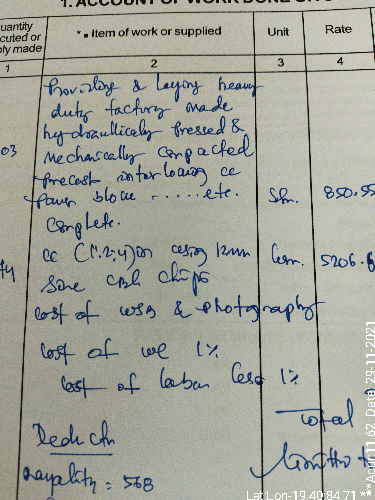 1. ACCOUNT OF WORK DONE
uantity
cuted or
ply made
* Item of work or supplied
Unit
Rate
1
2
3
4
Providing & laying heavy
duty factory made
hydraullically pressed &
03
Mechanically compacted
precast interlocking cc
paver block ...... etc.
Sm.
850.55
Complete.
cc (1:2:4) using 12mm
Cum.
5206.6
74
Stone chips
cost of & photography
Cost of 1%
Cost of labour Cess 1%
Total
Deduction
Royality = 568
Lat Lon-19.40 84.71
***Accu:11.62 Date 29-11-2021